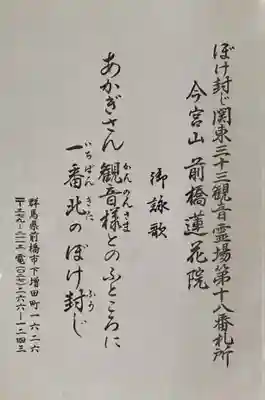 ぼけ封じ関東三十三観音霊場第十八番札所
今宮山 前橋蓮花院
御詠歌
あかぎさん 観音様とのふところに
かんのんさま
一番北のぼけ封じ
いちばんきた ふう
群馬県前橋市下増田町一六二六
電(〇二七)二六六-一二四三